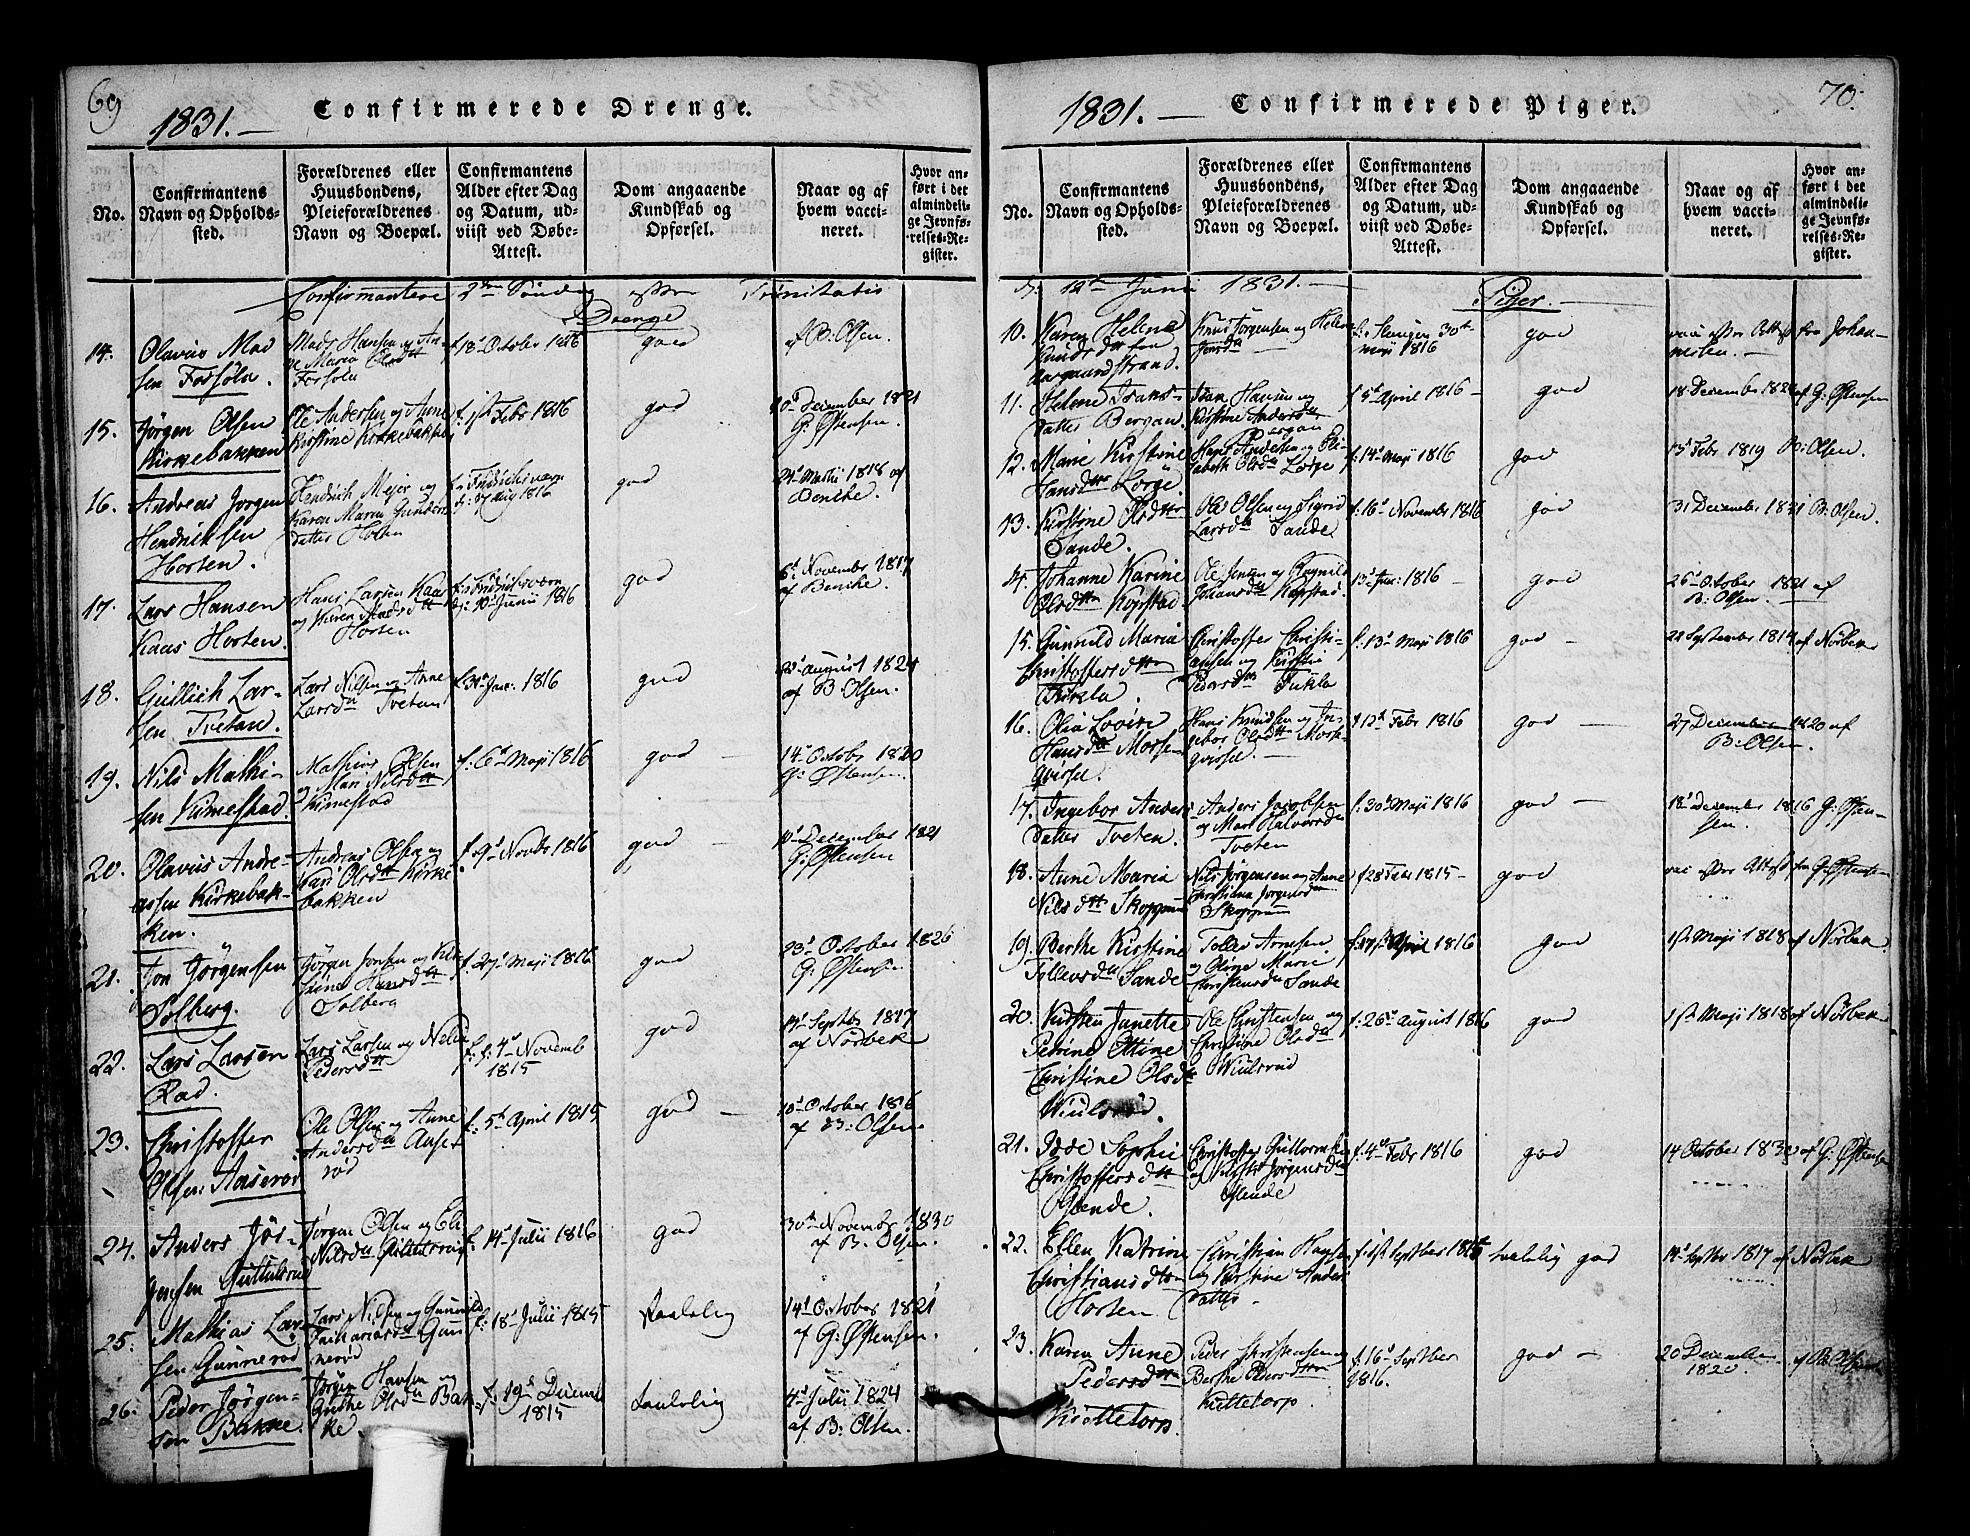 69
1831. —
Confirmerede Drenge.
No.
Confirmantens
Navn og Opholds-
sted.
Forældrenes eller
Huusbondens,
Pleieforældrenes
Navn og Boepæl.
Confirmantens
Alder efter Dag
og Datum, ud-
viist ved Døbe-
Attest.
Dom angaaende
Kundskab og
Opførsel.
Naar og af
hvem vacci-
neret.
Hvor an-
ført i det
almindeli-
ge Jevnfø-
relses-Re-
gister.
Confirmantere 2den Søndag efter Trinitatis
Drenge
14.
Olavus Mad
sen
Mads Hansen og An
ne Maria Olsdtt
f 18d October 1816
god
af B: Olsen.
15.
Jørgen Olsen
Kirkebakken
Ole Andersen og Anne
Kirstine Kirkebakken
f: 1ste Febr 1816
god
10de December 1821
G: Østensen.
16.
Andreas Jørgen
Hendriksen
Horten.
Hendrich Mejer og
Karen Maria Gunders
datter Horten
Fredrichsværn
17 Aug 1816
god
24d Martii 1818 af
Benche.
17.
Lars Hansen
Kaas Horten.
Hans Larsen Kaas
og Karen Madsdtt
Horten
f: Fredrichsværn
d: 10d Junii 1816
god
6d November 1817
af Benche.
18.
Gullich Lar-
sen Tvetan.
Lars Nilsen og Anne
Larsdtt Tvetan
Jan: 1816
god
august 1824
af B. Olsen.
19.
Nils Mathi-
sen Kimestad.
Mathias Olsen
og Mari Nilsdtt
Kimestad
f: 6d Maji 1816
god —
14d Octobr 1820
G: Østensen.
20.
Olavus Andre-
assen Kirkebak-
ken.
Andreas Olsen og
Kari Olsdtt Kirke
bakken
f: 9d Novbr 1816
god —
December 1821
G: Østensen
21.
Jon Jørgensen
Solberg.
Jørgen Jonsen og
Hansdtt
Solberg
f. 27d Maji 1816
god
23d October 1826
G: Østensen
22.
Lars Larsen
Rød.
Lars Larsen og
Pedersdtt
f: 4d Novemb
1815
god
Septbr 1817
af Nörbek
23.
Christoffer
Olsen Aaserød
Ole Olsen og Anne
Andersdtt Aase
rød
f: 5te April 1815
god —
10d October 1816
af B: Olsen.
24.
Anders Jør-
gensen
Jørgen Olsen og Eli
Nilsdtt
f: 14d Julii 1816
god
30te Novembr 1830
af B. Olsen.
25.
Mathias Lar
sen Gunnerød
Lars Nilsen og Gunnild
Zachariasdtt Gun
nerød
f: 18d Julii 1815
taalelig
14d October 1821
af G: Østensen.
26.
Peder Jørgen-
sen Bakke.
Jørgen Hansen og
Olsdtt Bak
ke.
f: 19d Decemb
1815
taalelig
4d Julii 1824
af B: Olsen
70.
1831. —
Confirmerede Piger.
No.
Confirmantens
Navn og Opholds-
sted.
Forældrenes eller
Huusbondens,
Pleieforældrenes
Navn og Boepæl.
Confirmantens
Alder efter Dag
og Datum, ud-
viist ved Døbe-
Attest.
Dom angaaende
Kundskab og
Opførsel.
Naar og af
hvem vacci-
neret.
Hvor an-
ført i det
almindeli-
ge Jevnfø-
relses-Re-
gister.
d: 12te Junii 1831. —
Piger. —
10.
Karen Helene
Knudsdtter fra
Aargaardstrand.
Knud Jørgensen og Helene
30te
maji 1816
god
vacc efter Attest fra Johan-
nesen. —
11.
Helene Frans-
datter Bergan.
Frans Hansen og
Kirstine Andersdtt
Bergan
f 5d April 1816 —
god
18 Decembr af G. Østensen
12.
Marie Kirstine
Hansdtter
Hans Andersen og Eli-
sabeth Olsdtt
f: 14d Maji 1816
god
13d Febr 1819 B: Olsen.
13.
Kirstine Olsdtter
Sande.
Ole Olsen og Sigrid
Larsdtt Sande
f: 16d November 1816
god
31 December 1821 B: Olsen.
14.
Johanne Karine
Olsdtter Kopstad.
Ole Jensen og Ragnild
Johansdtt Kopstad.
f 13d Jan: 1816 —
god
26d October 1821 af
B: Olsen.
15.
Gunnild Maria
Christoffersdtter
Fikla.
Christoffer Christi-
ansen og Kirstie
Pedersdtt Fikla
f. 13d Maji 1816
god —
28 September 1814 af Nörbek
16.
Olia Lovise
Hansdtt Morse-
qvissel.
Hans Knudsen og In-
gebor Olsdtt Morse-
qvissel. —
f 13d Febr 1816
god —
27 December 1820 af
B: Olsen.
17.
Ingebor Anders
datter Tveten.
Anders Jacobsen
og Mari Halvorsdtt
Tveten
f: 30d Maji 1816
god —
18d December 1816 G: Østen-
sen.
18.
Anne Maria
Nilsdtt Skoppum
Nils Jørgensen og Anne
Christiana Jørgensdtt
Skoppum
f 28 Febr 1815 —
god
vac efter Attest fra G: Østensen
19.
Berthe Kirstine
Tollevsdtt Sande
Tollev Arnesen
og Oløge Marie
Christensdtt Sande
April 1816
god
1ste Maji 1818 af Nörbek
20.
Kirsten Janette
Petrine Ottine
Christine Olsdtt
Wiulsrød.
Ole Christensen og
Christine Olsdtt
Wiulsrød
f: 26d August 1816
god
1ste Maji 1818 af Nörbek
21.
Sophie
Christoffersdtt
Christoffer Guttormsen
og Jørgensdtt
f: 4d Febr 1816
god
14 October af G: Østensen
22.
Ellen Katrine
Christiansdtter
Horten
Christian Hansen
og Kirstine Anders
datter.
f. 1ste Septber
taalelig god
Septbr 1817 af Nörbek
23.
Karen Anne
Pedersdtter
Peder Christensen og
Berthe Pedersdtter
f: 16d Septber
1816.
god —
20 December
1820. af B. Olsen